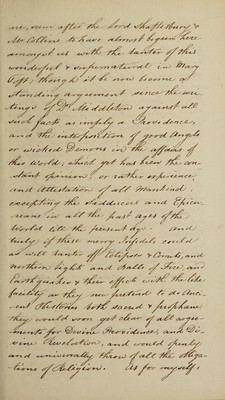 are, even after the Lord Shaftsbury &
Mr Collins to have almost begun here
amongst us with the banter of this
wonderful & supernatural in Mary
Toft, though it be now become a
standing argument since the wri-
tings of Dr. Middleton against all
such facts as imply a Providence,
and the interposition of good Angels
or wicked Demons in the affairs of
this World; which yet has been the con-
stant opinion, or rather experience,
and Attestation of all Mankind;
excepting the Sadducees and Epicu-
reans in all the past ages of the
World till the present age - and
truly if these merry Infidels could
as well banter off Eclipses & Comets, and
northern lights and Balls of Fire, and
Earthquakes & their effects with the like
facility as they now pretend to do Anci-
ent Histories both sacred & prophane
they would soon get clear of all argu-
ments for Divine Providence, and Di-
vine Revelation, and would openly
and universally throw off all the obliga-
tions of Religion. As for myself,